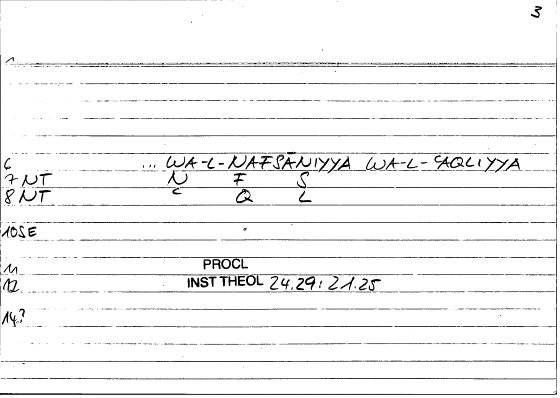 3
1
6 ... WA-L-NAFSĀNIYYA WA-L-ʿAQLIYYA
7 NT N F S
8 NT ʿ Q L
10 SE
11 PROCL
12 INST THEOL 24.29: 21.25
14.?